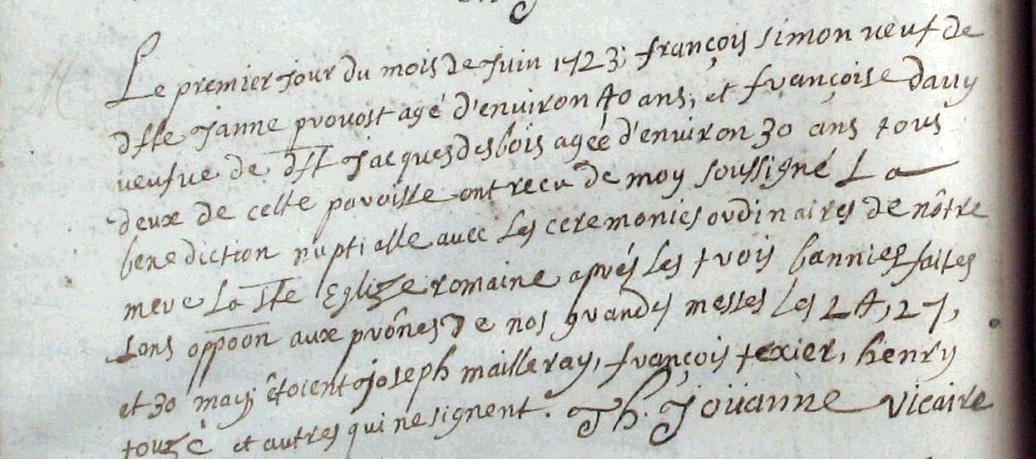 Le premier jour du mois de Juin 1723; françois simon veuf de
dffe Janne provost agé d'environ 40 ans, et françoise davy
veufve de dfft Jacques desbois ageé d'environ 30 ans tous
deux de cette paroisse ont recu de moy soussigné La
benediction nuptialle avec Les ceremonies ordinaires de nôtre
mere La Ste Eglize romaine aprés Les trois bannies faites
sans oppoon aux prônes de nos grandes messes Les 24, 27,
et 30 may étoient Joseph mailleray, françois texier, henry
touzé et autres qui ne signent. Th. Joüanne Vicaire